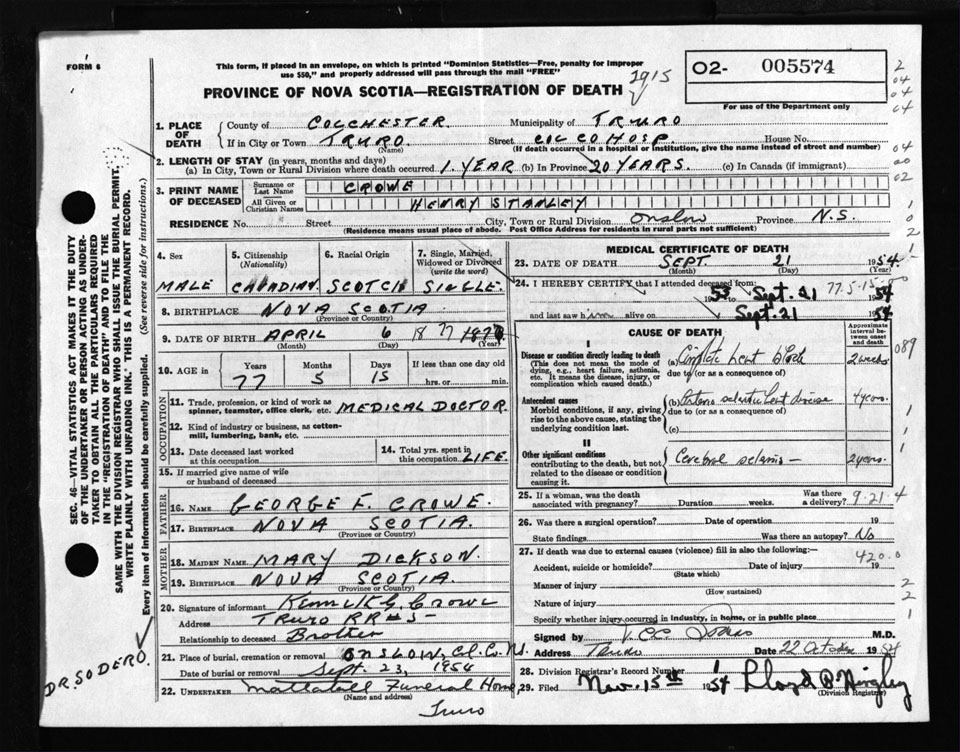 FORM 6
This form, if placed in an envelope, on which is printed "Dominion Statistics—Free, penalty for improper
use $50," and properly addressed will pass through the mail "FREE"
1915
PROVINCE OF NOVA SCOTIA—REGISTRATION OF DEATH
02- 005574
For use of the Department only
2
04
04
04
04
00
02
1
0
2
1. PLACE OF DEATH
County of COLCHESTER Municipality of TRURO
If in City or Town TRURO Street COL CO HOSP House No.
(Name) (If death occurred in a hospital or institution, give the name instead of street and number)
2. LENGTH OF STAY (in years, months and days)
(a) In City, Town or Rural Division where death occurred 1 YEAR (b) In Province 20 YEARS. (c) In Canada (if immigrant)
3. PRINT NAME OF DECEASED
Surname or Last Name CROWE
All Given or Christian Names HENRY STANLEY
RESIDENCE No. Street City, Town or Rural Division Onslow Province N.S.
(Residence means usual place of abode. Post Office Address for residents in rural parts not sufficient)
4. Sex
MALE
5. Citizenship (Nationality)
CANADIAN
6. Racial Origin
SCOTCH
7. Single, Married, Widowed or Divorced (write the word)
SINGLE
8. BIRTHPLACE NOVA SCOTIA
(Province or Country)
9. DATE OF BIRTH APRIL 6 1877
(Month) (Day) (Year)
10. AGE in Years Months Days If less than one day old
77 5 15 hrs. or min.
OCCUPATION
11. Trade, profession, or kind of work as spinner, teamster, office clerk, etc. MEDICAL DOCTOR
12. Kind of industry or business, as cotton-mill, lumbering, bank, etc.
13. Date deceased last worked at this occupation
14. Total yrs. spent in this occupation LIFE.
15. If married give name of wife or husband of deceased
FATHER
16. Name GEORGE F. CROWE.
17. BIRTHPLACE NOVA SCOTIA.
(Province or Country)
MOTHER
18. MAIDEN NAME MARY DICKSON.
19. BIRTHPLACE NOVA SCOTIA.
(Province or Country)
20. Signature of informant Kenneth G. Crowe
Address TRURO RR#5-
Relationship to deceased Brother
21. Place of burial, cremation or removal ONSLOW, Col. Co. N.S.
Date of burial or removal Sept. 23, 1954
22. UNDERTAKER Mattatall Funeral Home,
(Name and address)
Truro
MEDICAL CERTIFICATE OF DEATH
23. DATE OF DEATH SEPT. 21 1954
(Month) (Day) (Year)
24. I HEREBY CERTIFY that I attended deceased from:
77.5.15
1953 Sept. 21 1954
and last saw him alive on Sept. 21 1954
CAUSE OF DEATH
Approximate interval between onset and death
089
I
Disease or condition directly leading to death
(This does not mean the mode of dying, e.g., heart failure, asthenia, etc. It means the disease, injury, or complication which caused death.)
(a) Complete heart block 2 weeks
due to (or as a consequence of)
Antecedent causes
Morbid conditions, if any, giving rise to the above cause, stating the underlying condition last.
(b) heart disease 4 years.
due to (or as a consequence of)
(c)
II
Other significant conditions
contributing to the death, but not related to the disease or condition causing it.
Cerebral 2 years.
25. If a woman, was the death associated with pregnancy? Duration weeks. Was there a delivery?
9.21.4
26. Was there a surgical operation? Date of operation 19
State findings Was there an autopsy? No
27. If death was due to external causes (violence) fill in also the following:—
420.0
Accident, suicide or homicide? Date of injury 19
(State which)
Manner of injury
(How sustained)
Nature of injury
Specify whether injury occurred in industry, in home, or in public place
Signed by M.D.
Address Truro Date 22 October 1954
28. Division Registrar's Record Number 1
29. Filed Nov. 15th 1954
(Division Registrar)
SEC. 46—VITAL STATISTICS ACT MAKES IT THE DUTY
OF THE UNDERTAKER OR PERSON ACTING AS UNDER-
TAKER TO OBTAIN ALL THE PARTICULARS REQUIRED
IN THE "REGISTRATION OF DEATH" AND TO FILE THE
SAME WITH THE DIVISION REGISTRAR WHO SHALL ISSUE THE BURIAL PERMIT.
WRITE PLAINLY WITH UNFADING INK. THIS IS A PERMANENT RECORD.
Every item of information should be carefully supplied. (See reverse side for instructions.)
DR. SODERO.